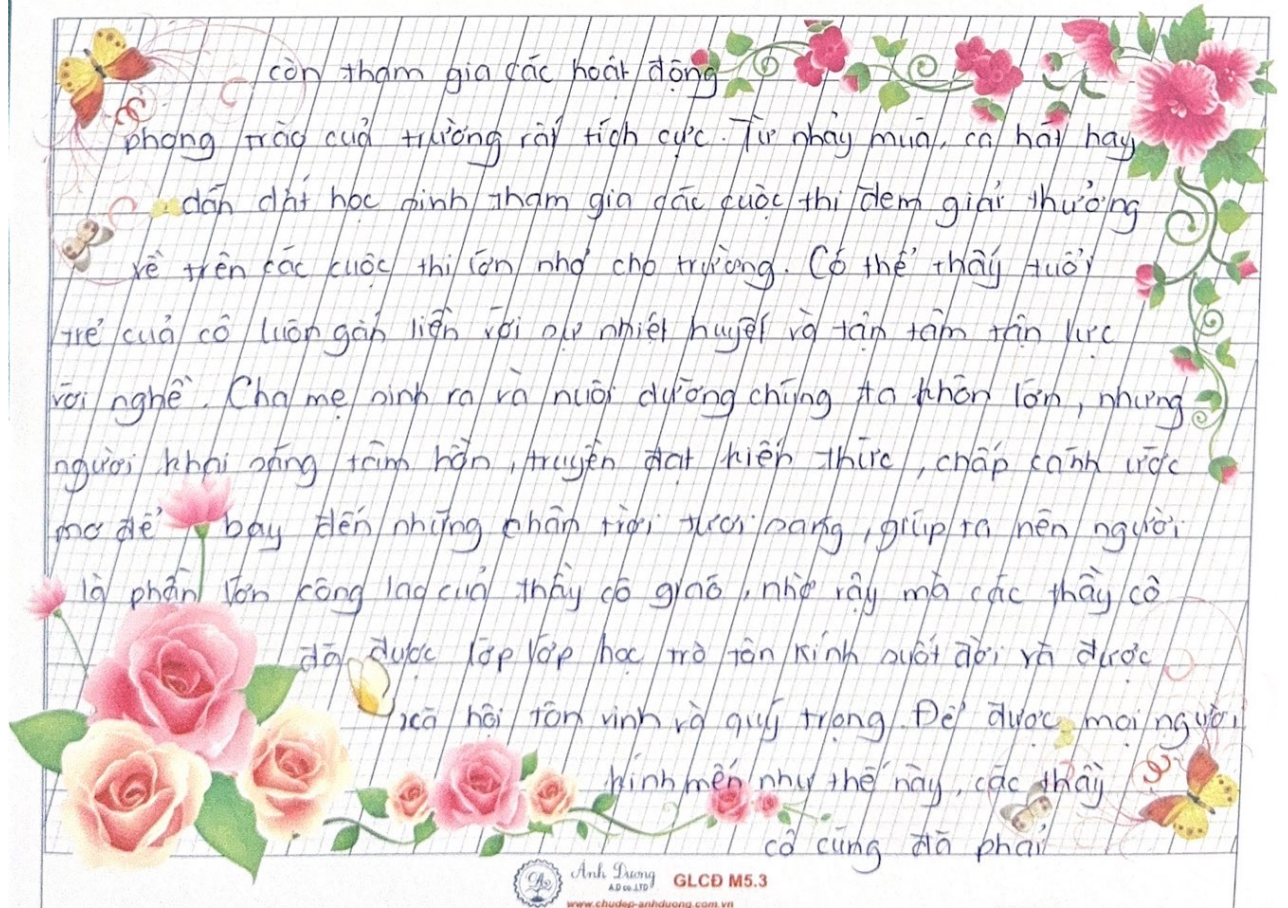 còn tham gia các hoạt động
phong trào của trường rất tích cực. Từ nhảy múa, ca hát hay
dẫn dắt học sinh tham gia các cuộc thi đem giải thưởng
về trên các cuộc thi lớn nhỏ cho trường. Có thể thấy tuổi
trẻ của cô luôn gắn liền với sự nhiệt huyết và tận tâm tận lực
với nghề. Cha mẹ sinh ra và nuôi dưỡng chúng ta khôn lớn, nhưng
người khai sáng tâm hồn, truyền đạt kiến thức, chấp cánh ước
mơ để bay đến những chân trời tươi sáng, giúp ta nên người
là phần lớn công lao của thầy cô giáo, nhờ vậy mà các thầy cô
đã được lớp lớp học trò tôn kính suốt đời và được
xã hội tôn vinh và quý trọng. Để được mọi người
kính mến như thế này, các thầy
cô cũng đã phải
Ánh Dương
A.D co.,LTD
GLCĐ M5.3
www.chudep-anhduong.com.vn